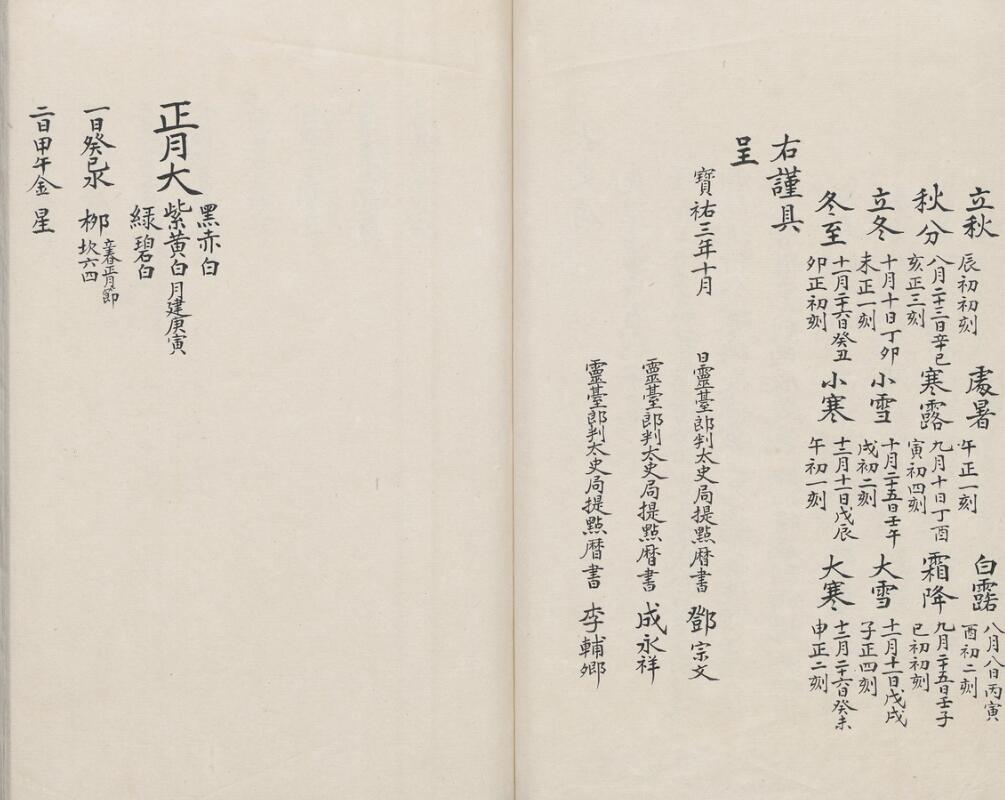 立秋 辰初初刻 處暑 午正一刻 白露 八月八日丙寅 酉初二刻
秋分 八月二十三日辛巳 亥正三刻 寒露 九月十日丁酉 寅初四刻 霜降 九月二十五日壬子 巳初初刻
立冬 十月十日丁卯 未正一刻 小雪 十月二十五日壬午 戌初二刻 大雪 十一月十一日戊戌 子正四刻
冬至 十一月二十六日癸丑 卯正初刻 小寒 十二月十一日戊辰 午初一刻 大寒 十二月二十六日癸未 申正二刻
右謹具
呈
寶祐三年十月 日靈臺郎判太史局提點曆書 鄧宗文
靈臺郎判太史局提點曆書 成永祥
靈臺郎判太史局提點曆書 李輔卿
正月大 黑赤白 紫黃白 綠碧白 月建庚寅
一日癸巳水 柳 立春正月節 坎六四
二日甲午金 星